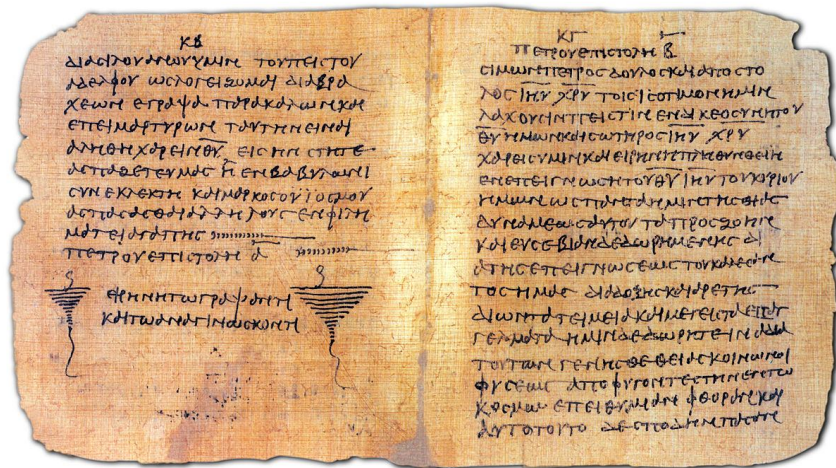 ΚΒ
ΔΙΑ ϹΙΛΟΥΑΝΟΥ ΥΜΙΝ ΤΟΥ ΠΕΙϹΤΟΥ
ΑΔΕΛΦΟΥ ΩϹ ΛΟΓΕΙΖΟΜΑΙ ΔΙΑ ΒΡΑ
ΧΕΩΝ ΕΓΡΑΨΑ ΠΑΡΑΚΑΛΩΝ ΚΑΙ
ΕΠΕΙΜΑΡΤΥΡΩΝ ΤΑΥΤΗΝ ΕΙΝΑΙ
ΑΛΗΘΗ ΧΑΡΕΙΝ Θ̅Υ̅ ΕΙϹ ΗΝ ϹΤΗΤΕ
ΑϹΠΑΖΕΤΕ ΥΜΑϹ Η ΕΝ ΒΑΒΥΛΩΝΙ
ϹΥΝΕΚΛΕΚΤΗ ΚΑΙ ΜΑΡΚΟϹ Ο ΥΙΟϹ ΜΟΥ
ΑϹΠΑϹΑϹΘΑΙ ΑΛΛΗΛΟΥϹ ΕΝ ΦΙΛΗ
ΜΑΤΕΙ ΑΓΑΠΗϹ
ΠΕΤΡΟΥ ΕΠΙϹΤΟΛΗ Α̅
ΕΙΡΗΝΗ ΤΩ ΓΡΑΨΑΝΤΙ
ΚΑΙ ΤΩ ΑΝΑΓΙΝΩϹΚΟΝΤΙ
ΚΓ
ΠΕΤΡΟΥ ΕΠΙϹΤΟΛΗ Β̅
ϹΙΜΩΝ ΠΕΤΡΟϹ ΔΟΥΛΟϹ ΚΑΙ ΑΠΟϹΤΟ
ΛΟϹ Ι̅Η̅Υ̅ Χ̅Ρ̅Υ̅ ΤΟΙϹ ΙϹΟΤΙΜΟΝ ΗΜΙΝ
ΛΑΧΟΥϹΙΝ ΠΙϹΤΙΝ ΕΝ ΔΙΚΕΟϹΥΝΗ ΤΟΥ
Θ̅Υ̅ ΗΜΩΝ ΚΑΙ ϹΩΤΗΡΟϹ Ι̅Η̅Υ̅ Χ̅Ρ̅Υ̅
ΧΑΡΕΙϹ ΥΜΙΝ ΚΑΙ ΕΙΡΗΝΗ ΠΛΗΘΥΝΘΕΙΗ
ΕΝ ΕΠΕΙΓΝΩϹΗ ΤΟΥ Θ̅Υ̅ Ι̅Η̅Υ̅ ΤΟΥ ΚΥΡΙΟΥ
ΗΜΩΝ ΩϹ ΠΑΝΤΑ ΗΜΙΝ ΤΗϹ ΘΙΑϹ
ΔΥΝΑΜΕΩϹ ΑΥΤΟΥ ΤΑ ΠΡΟϹ ΖΩΗΝ
ΚΑΙ ΕΥϹΕΒΙΑΝ ΔΕΔΩΡΗΜΕΝΗϹ ΔΙ
Α ΤΗϹ ΕΠΕΙΓΝΩϹΕΩϹ ΤΟΥ ΚΑΛΕϹΑΝ
ΤΟϹ ΗΜΑϹ ΔΙΑ ΔΟΞΗϹ ΚΑΙ ΑΡΕΤΗϹ
ΔΙ ΩΝ ΤΑ ΤΕΙΜΕΙΑ ΚΑΙ ΜΕΓΕΙϹΤΑ ΕΠΑΓ
ΓΕΛΜΑΤΑ ΗΜΙΝ ΔΕΔΩΡΗΤΕ ΙΝΑ ΔΙΑ
ΤΟΥΤΩΝ ΓΕΝΗϹΘΕ ΘΕΙΑϹ ΚΟΙΝΩΝΟΙ
ΦΥϹΕΩϹ ΑΠΟΦΥΓΟΝΤΕϹ ΤΗΝ ΕΝ ΤΩ
ΚΟϹΜΩ ΕΠΕΙΘΥΜΙΑΝ ΦΘΟΡΑΝ ΚΑΙ
ΑΥΤΟ ΤΟΥΤΟ ΔΕ ϹΠΟΔΗΝ ΠΑϹΑΝ